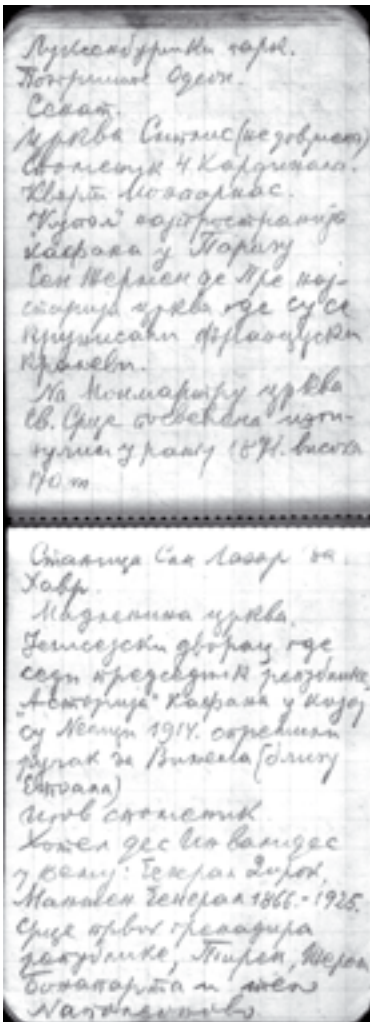 Луксенбуршки парк.
Позориште Одеон.
Сенат.
црква Сулпис (недовршена)
Споменик 4 Кардинала.
Кварт Монпарнас.
"Купол" најпространија
кафана у Паризу
Сен Жермен де Пре нај-
старија црква где су се
крунисали француски
краљеви.
На Монмартру црква
Св. Срце посвећена изги-
нулим у рату 1871. висока
170 m
Станица Сен Лазар за
Хавр.
Мадленина црква.
Јелисејски дворац где
седи председник републике,
"Асторија" кафана у којој
су Немци 1914. спремили
ручак за Виљема (близу
Етоала)
споменик
Хотел дес Инвалидес
у њему: Ђенерал Дирок,
Ђенерал 1866.-1925.
Срце првог гренадира
републике, Тирен, Жером
Бонапарта и тело
Наполеоново